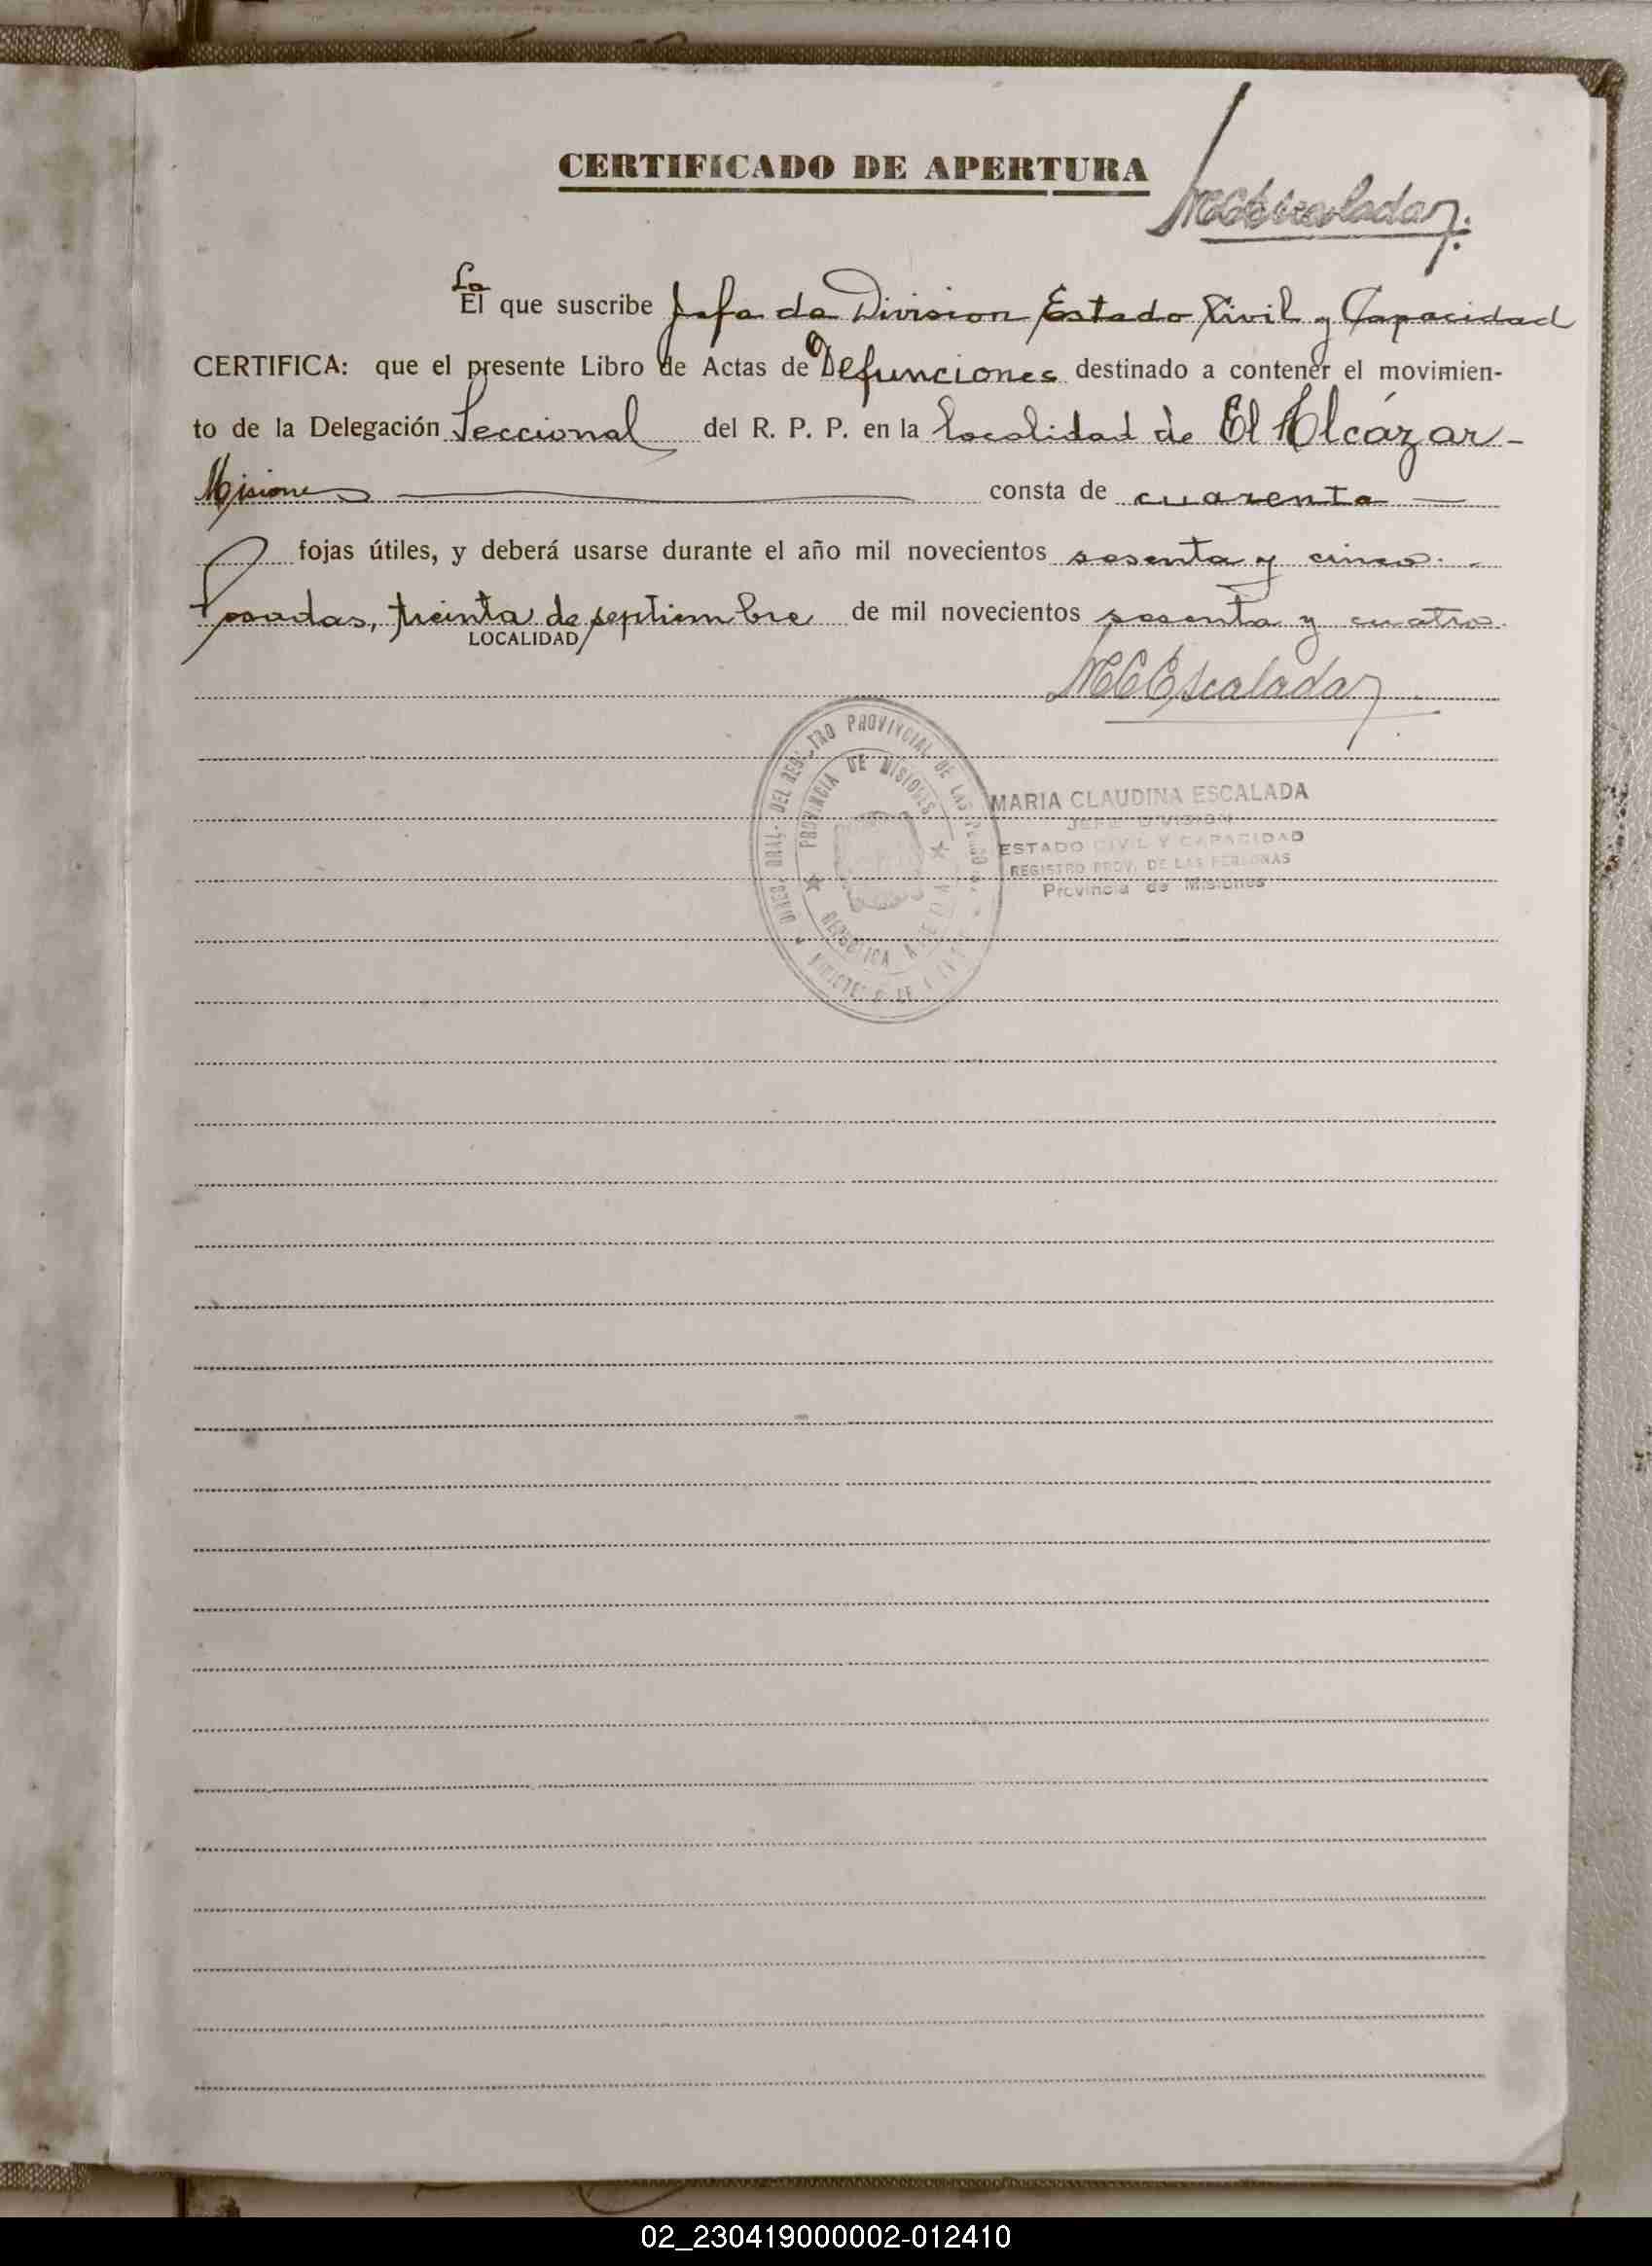 CERTIFICADO DE APERTURA
MCEscalada
La
El que suscribe Jefa de Division Estado Civil y Capacidad
CERTIFICA: que el presente Libro de Actas de Defunciones destinado a contener el movimien-
to de la Delegación Seccional del R. P. P. en la localidad de El Alcázar -
Misiones consta de cuarenta
fojas útiles, y deberá usarse durante el año mil novecientos sesenta y cinco.
Posadas, treinta de septiembre de mil novecientos sesenta y cuatro.
LOCALIDAD
MCEscalada
DIREC. GRAL. DEL REGISTRO PROVINCIAL DE LAS PERSONAS
PROVINCIA DE MISIONES
REPUBLICA
MARIA CLAUDINA ESCALADA
JEFE DIVISION
ESTADO CIVIL Y CAPACIDAD
REGISTRO PROV. DE LAS PERSONAS
Provincia de Misiones
02_230419000002-012410